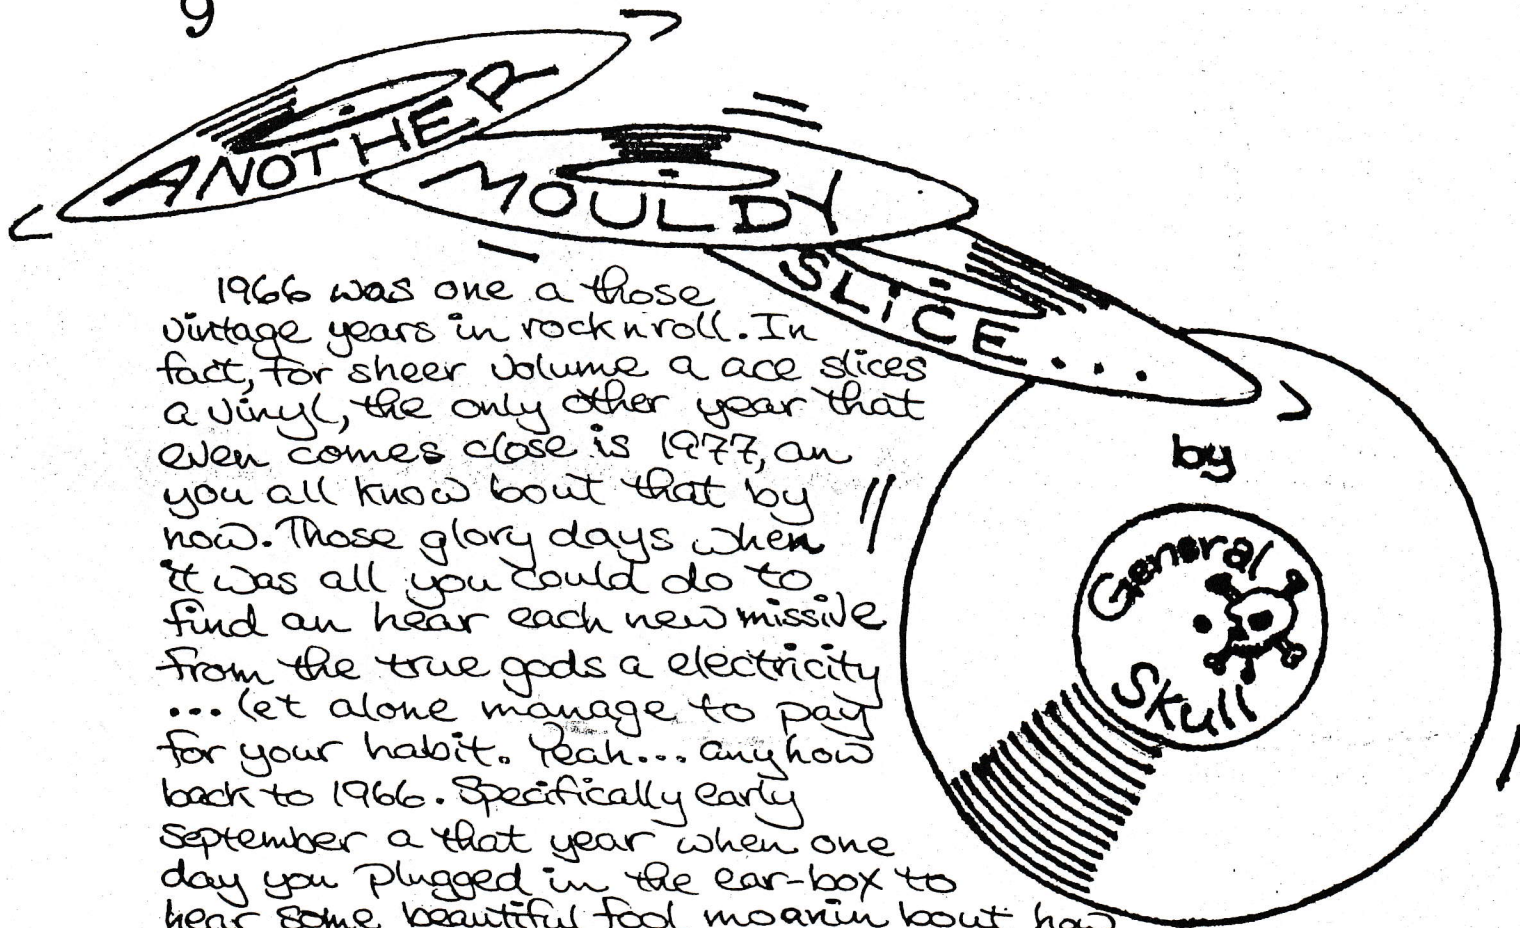 9
ANOTHER
MOULDY
SLICE...
by
General
Skull
1966 was one a those
vintage years in rock n roll. In
fact, for sheer volume a ace slices
a vinyl, the only other year that
even comes close is 1977, an
you all know bout that by
now. Those glory days when
it was all you could do to
find an hear each new missive
from the true gods a electricity
... let alone manage to pay
for your habit. Yeah... anyhow
back to 1966. Specifically early
September a that year when one
day you plugged in the ear-box to
hear some beautiful fool moanin bout how